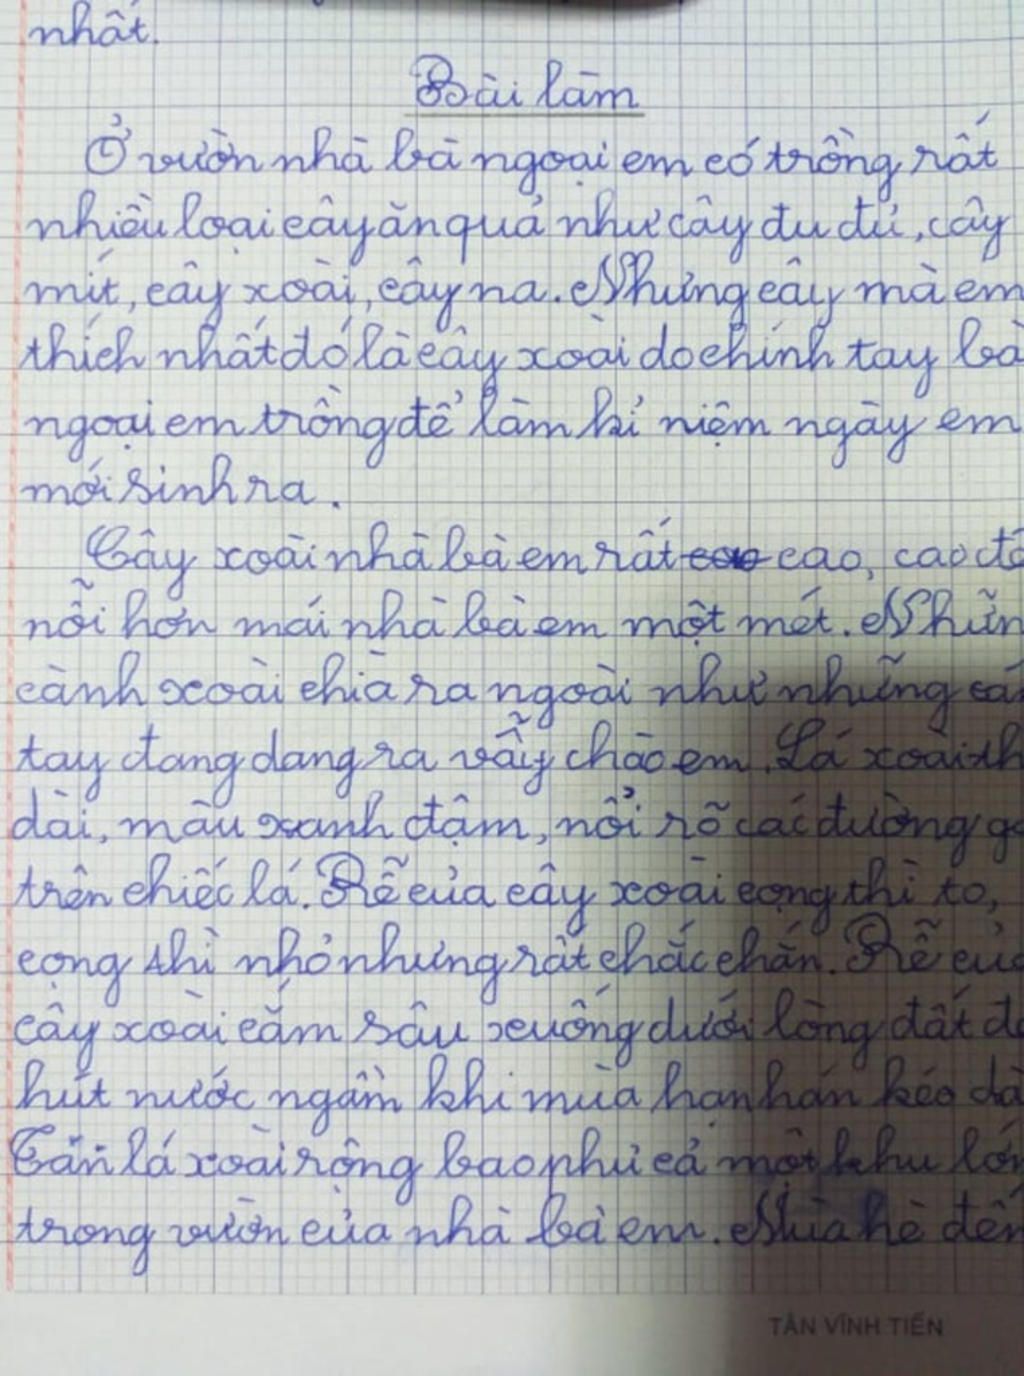 nhất.
Bài làm
Ở vườn nhà bà ngoại em có trồng rất
nhiều loại cây ăn quả như cây đu đủ, cây
mít, cây xoài, cây na. Nhưng cây mà em
thích nhất đó là cây xoài do chính tay bà
ngoại em trồng để làm kỉ niệm ngày em
mới sinh ra.
Cây xoài nhà bà em rất cao cao, cao
nỗi hơn mái nhà bà em một mét.
cành xoài chìa ra ngoài như những
tay đang dang ra vẫy chào em. Lá xoài
dài, màu xanh đậm, nổi rõ các đường
trên chiếc lá. Rễ của cây xoài cọng thì to,
cọng thì nhỏ nhưng rất chắc chắn. Rễ
cây xoài cắm sâu xuống dưới lòng đất
hút nước ngầm khi mùa hạn hán kéo
Tán lá xoài rộng bao phủ cả một khu
trong vườn của nhà bà em. Mùa hè
TÂN VĨNH TIẾN